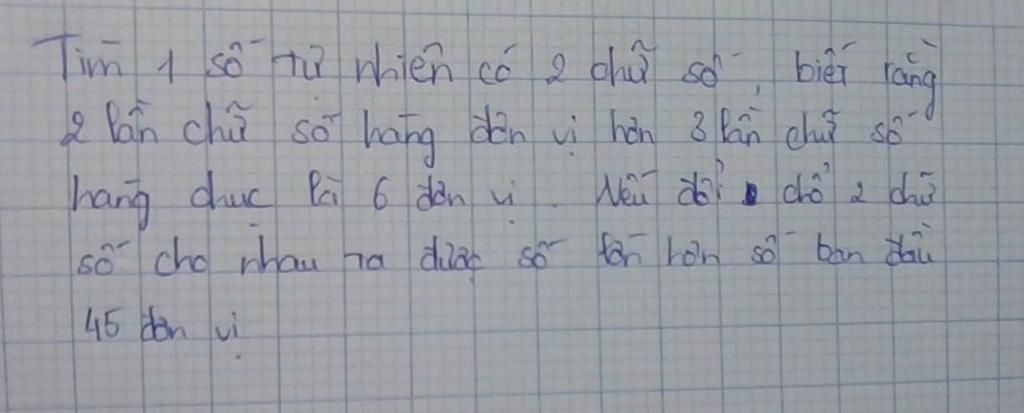 Tìm 1 số tự nhiên có 2 chữ số, biết rằng
2 lần chữ số hàng đơn vị hơn 3 lần chữ số
hàng chục là 6 đơn vị. Nếu đổi chỗ 2 chữ
số cho nhau ta được số lớn hơn số ban đầu
45 đơn vị